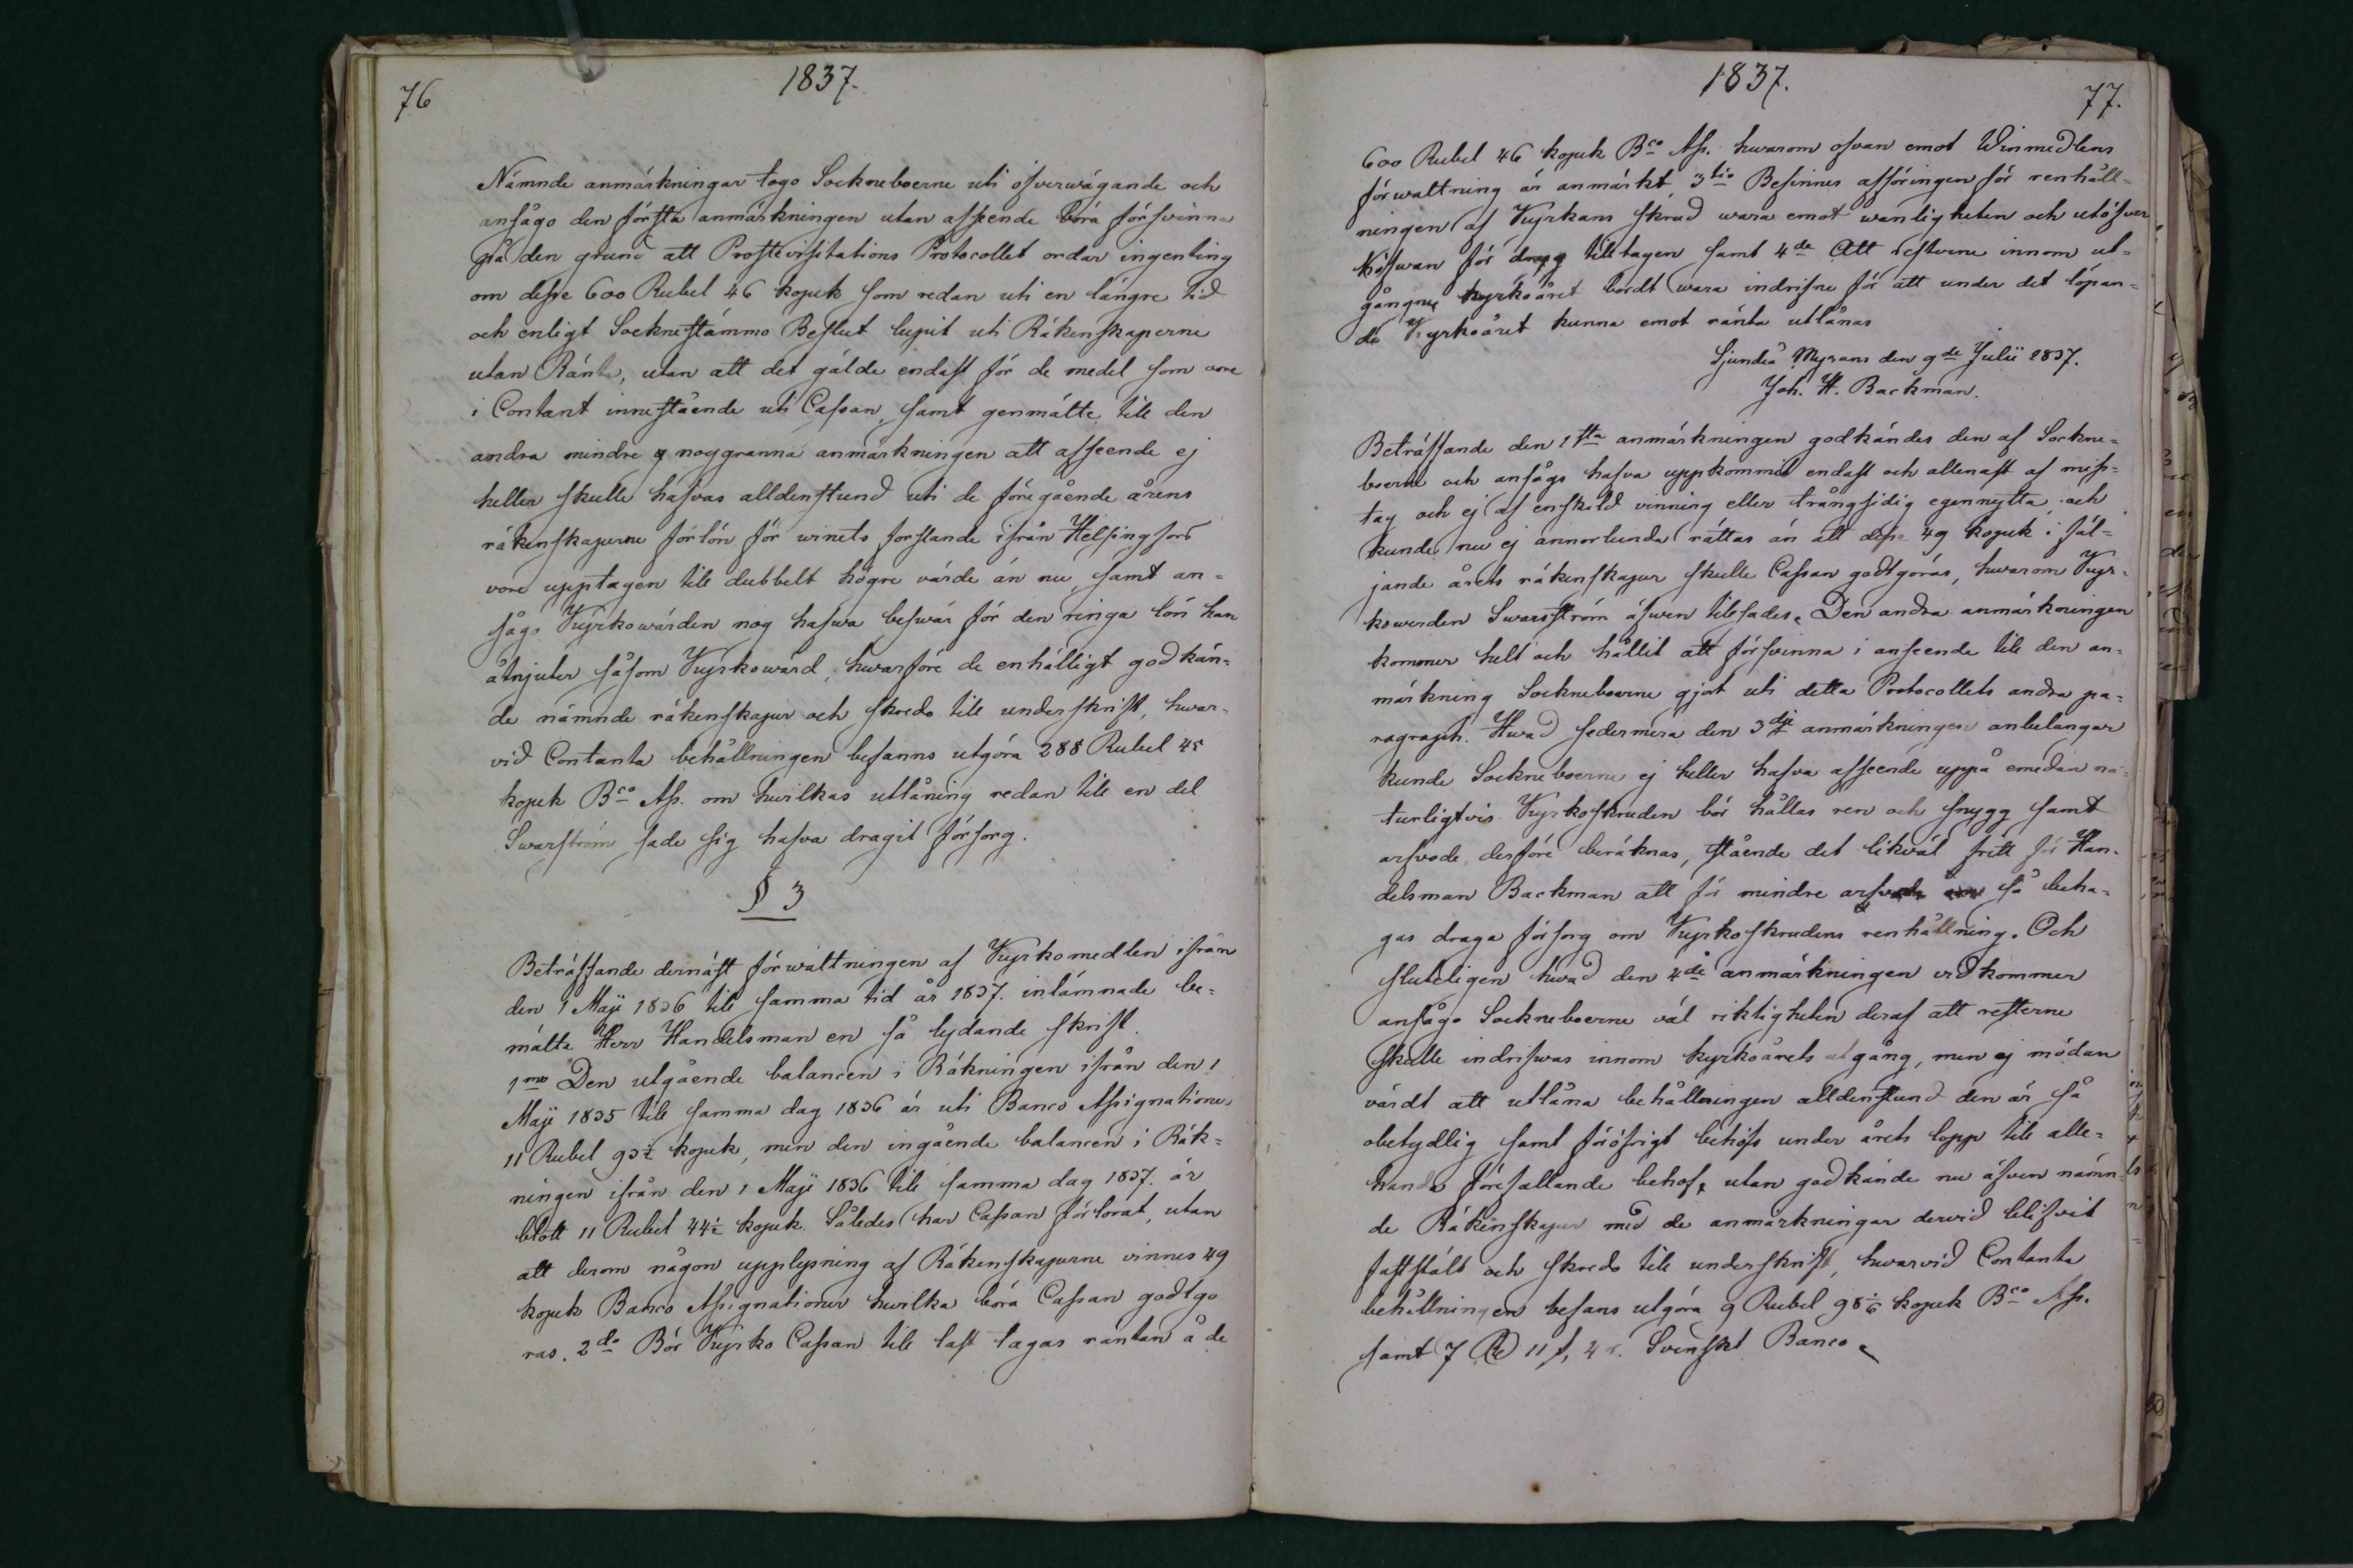 76
1837.
Nämnde anmärkningar togo Sockneboerne uti öfverwägande och
ansågo den första anmärkningen utan afseende böra försvinna
på den grund att Prostevisitations Protocollet ordar ingenting
om desse 600 Rubel 46 kopek som redan uti en längre tid
och enligt Socknestämmo Beslut lupit uti Räkenskaperne
utan Ränta, utan att det gälde endast för de medel som vore
i Contant innestående uti Cassan, samt genmälte till den
andra mindre noggranna anmärkningen att afseende ej
heller skulle hafvas alldenstund uti de föregående årens
räkenskaperne förlön för winets forslande ifrån Helsingfors
vore upptagen till dubbelt högre värde än nu, samt an-
sågo Kyrkowärden nog hafwa beswär för den ringa lön han
åtnjuter såsom Kyrkowärd, hwarföre de enhälligt godkän-
de nämnde räkenskaper och skreds till underskrift, hwar-
vid Contanta behållningen befanns utgöra 288 Rubel 45
kopek Bco Ass. om hwilkas utlåning redan till en del
Swarström sade sig hafva dragit försorg.
§ 3
Beträffande dernäst förwaltningen af Kyrkomedlen ifrån
den 1 Maji 1836 till samma tid år 1837. inlämnade be-
mälte Herr Handelsman en så lydande skrift.
1mo Den utgående balancen i Räkningen ifrån den 1
Maji 1835 till samma dag 1836 är uti Banco Assignationer
11 Rubel 93½ kopek, men den ingående balancen i Räk-
ningen ifrån den 1 Maji 1836 till samma dag 1837. är
blott 11 Rubel 44½ kopek. Således har Cassan förlorat, utan
att derom någon upplysning af Räkenskaperne vinnes 49
kopek Banco Assignationer hwilka böra Cassan godtgö
ras. 2do Bör Kyrko Cassan till last tagas räntan å de
1837.
77.
600 Rubel 46 kopek Bco Ass. hwarom ofvan emot Winmedlens
förwaltning är anmärkt 3tio Befinnes afföringen för renhåll-
ningen af Kyrkans skrud wara emot wanligheten och utöfver
för tilltagen samt 4de Att resterne innom ut-
gångne kyrkoåret bordt wara indrifne för att under det löpan-
de Kyrkoåret kunna emot ränta utlånas
Sjundeå Myrans den 9de Julii 1837.
Joh. H. Backman.
Beträffande den 1sta anmärkningen godkändes den af Sockne-
boerne och ansågs hafva uppkommit endast och allenast af miss-
tag och ej af enskild vinning eller trångsidig egennytta och
kunde nu ej annorlunda rättas än att desse 49 kopek i föl-
jande årets räkenskaper skulle Cassan godtgöras, hwarom Kyr-
kowerden Swarström äfwen tillsades. Den andra anmärkningen
kommer helt och hållit att försvinna i anseende till den an-
märkning Sockneboerne gjort uti detta Protocollets andra pa-
ragraph. Hwad sedermera den 3dje anmärkningen anbelangar
kunde Sockneboerne ej heller hafva afseende uppå emedan na-
turligtvis Kyrkoskruden bör hållas ren och snygg samt
arfvode derföre beräknas, stående det likväl fritt för Han-
delsman Backman att för mindre arfvode så beha-
gas draga försorg om Kyrkoskrudens renhållning. Och
sluteligen hwad den 4de anmärkningen vidkommer
ansågo Sockneboerne väl riktigheten deraf att resterne
skulle indrifwas innom kyrkoårets utgång, men ej mödan
värdt att utlåna behållningen alldenstund den är så
obetydlig samt föröfrigt behöfs under årets lopp till alle-
handa förefallande behof, utan godkände nu äfven nämn-
de Räkenskaper med de anmärkningar dervid blifvit
fastställt och skreds till underskrift, hwarvid Contanta
behållningen befans utgöra 9 Rubel 98 1/6 kopek Bco Ass.
samt 7 Rd 11 s, 4 r. Svenskt Banco.